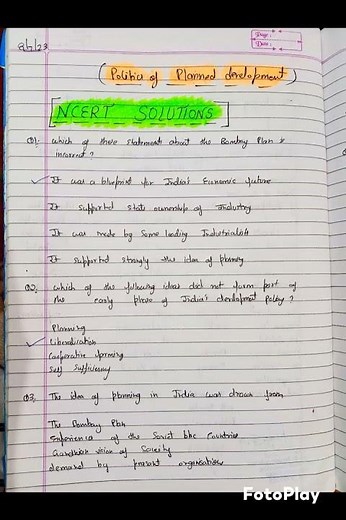 Page:
Date:
26/23
Politics of Planned development
NCERT SOLUTIONS
Q1. Which of these statements about the Bombay Plan is
incorrect ?
It was a blueprint for India's Economic future
It supported state ownership of Industry
It was made by some leading Industrialists
It supported strongly the idea of planning
Q2. Which of the following ideas did not form part of
the early phase of India's development Policy ?
Planning
Liberalisation
Cooperative farming
Self Sufficiency
Q3. The idea of planning in India was drawn from
The Bombay Plan
Experience of the Soviet bloc Countries
Gandhian vision of Society
demand by peasant organisations
FotoPlay